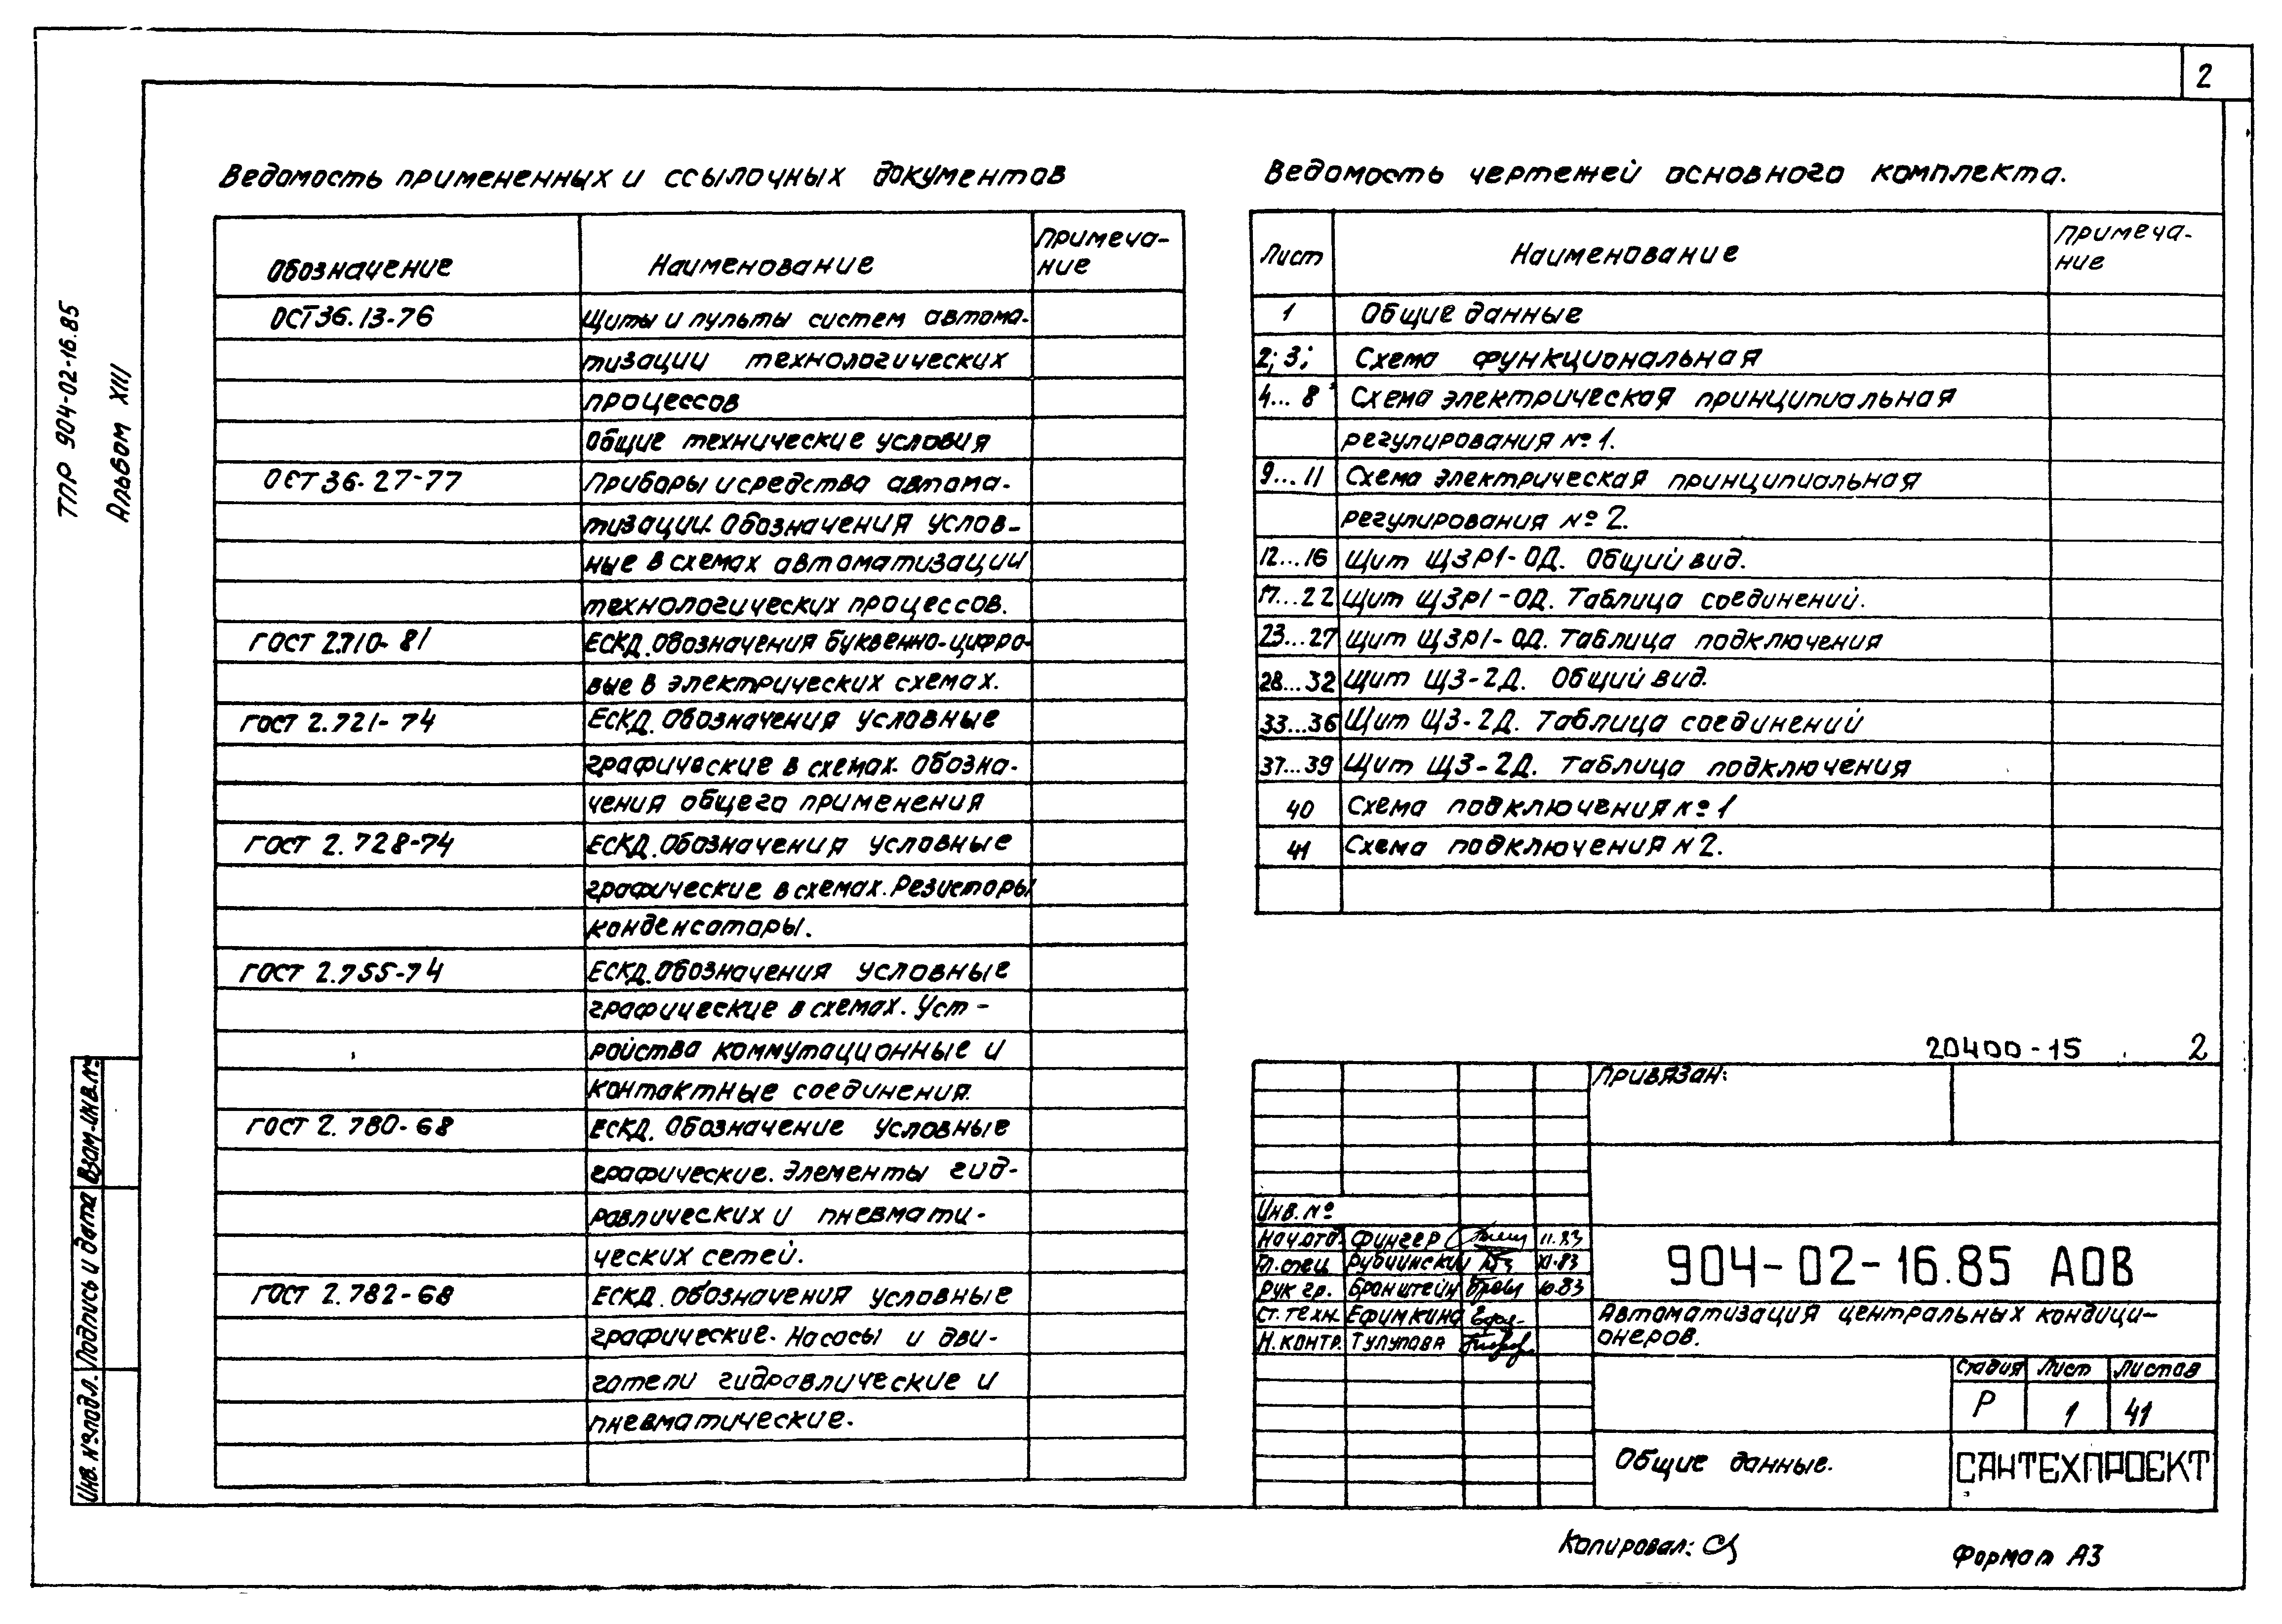 2
ТПР 904-02-16.85
Альбом XIII
Ведомость примененных и ссылочных документов
Обозначение
Наименование
Примеча-
ние
ОСТ 36.13-76
Щиты и пульты систем автома-
тизации технологических
процессов
Общие технические условия
ОСТ 36.27-77
Приборы и средства автома-
тизации. Обозначения услов-
ные в схемах автоматизации
технологических процессов.
ГОСТ 2.710-81
ЕСКД. Обозначения буквенно-цифро-
вые в электрических схемах.
ГОСТ 2.721-74
ЕСКД. Обозначения условные
графические в схемах. Обозна-
чения общего применения
ГОСТ 2.728-74
ЕСКД. Обозначения условные
графические в схемах. Резисторы
конденсаторы.
ГОСТ 2.755-74
ЕСКД. Обозначения условные
графические в схемах. Уст-
ройства коммутационные и
контактные соединения.
ГОСТ 2.780-68
ЕСКД. Обозначение условные
графические. Элементы гид-
равлических и пневмати-
ческих сетей.
ГОСТ 2.782-68
ЕСКД. Обозначения условные
графические. Насосы и дви-
гатели гидравлические и
пневматические.
Ведомость чертежей основного комплекта.
Лист
Наименование
Примеча-
ние
1 Общие данные
2; 3; Схема функциональная
4...8 Схема электрическая принципиальная
регулирования №1.
9...11 Схема электрическая принципиальная
регулирования №2.
12...16 Щит ЩЗР1-ОД. Общий вид.
17...22 Щит ЩЗР1-ОД. Таблица соединений.
23...27 Щит ЩЗР1-ОД. Таблица подключения
28...32 Щит ЩЗ-2Д. Общий вид.
33...36 Щит ЩЗ-2Д. Таблица соединений
37...39 Щит ЩЗ-2Д. Таблица подключения
40 Схема подключения №1
41 Схема подключения N2.
20400-15 2
Привязан:
Инв. №
Нач.отд. Фингер 11.83
Гл. спец Рубчинский XI.83
Рук гр. Бронштейн 10.83
Ст. техн. Ефимкина
Н. контр. Тулупова
904-02-16.85 АОВ
Автоматизация центральных кондици-
онеров.
Стадия Лист Листов
Р 1 41
Общие данные.
САНТЕХПРОЕКТ
Взам. инв. №
Подпись и дата
Инв. № подл.
Копировал:
Формат А3